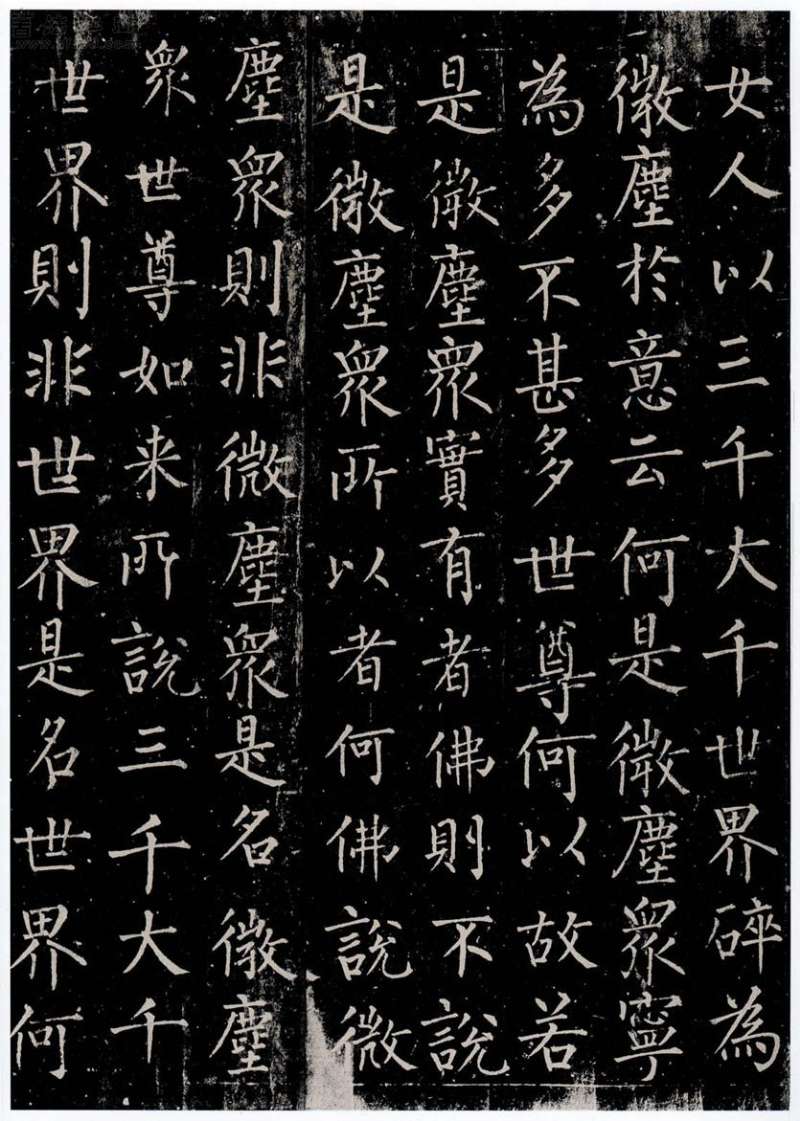 女人以三千大千世界碎為
微塵於意云何是微塵眾寧
為多不甚多世尊何以故若
是微塵眾實有者佛則不說
是微塵眾所以者何佛說微
塵眾則非微塵眾是名微塵
眾世尊如来所說三千大千
世界則非世界是名世界何